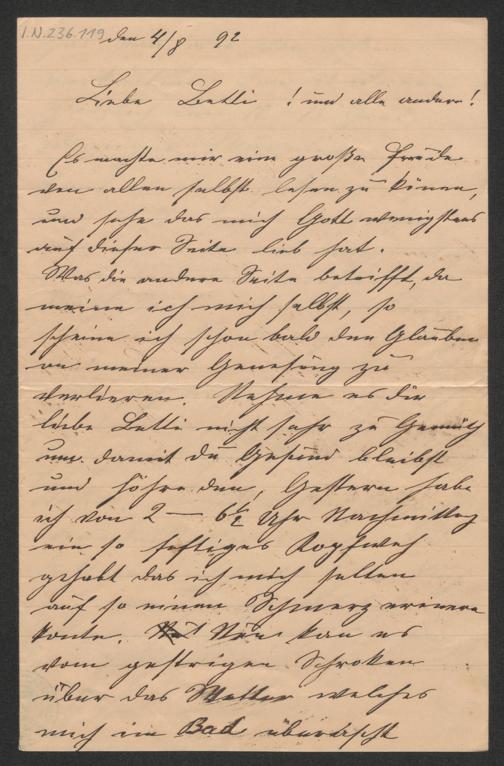 I.N.236.119
den 4/8 92
Liebe Betti! und alle andern!
Es machte mir eine große Freude
von allen selbst lesen zu könen,
und sehe das mich Gott wenigstens
auf dieser Seite lieb hat.
Was die andere Seite betrifft, da
meine ich mich selbst, so
scheine ich schon bald den Glauben
an meiner Genesung zu
verlieren. Nehme es dir
liebe Betti nicht sehr zu Gemüth
nur damit du Gesund bleibst
und höhre den, Gestern habe
ich von 2 — 6½ Uhr Nachmittag
ein so heftiges Kopfweh
gehabt das ich mich selten
auf so einen Schmerz erinern
konte. Nun kan es
vom gestrigen Schroken
über das Wetter welches
mich im Bad überascht